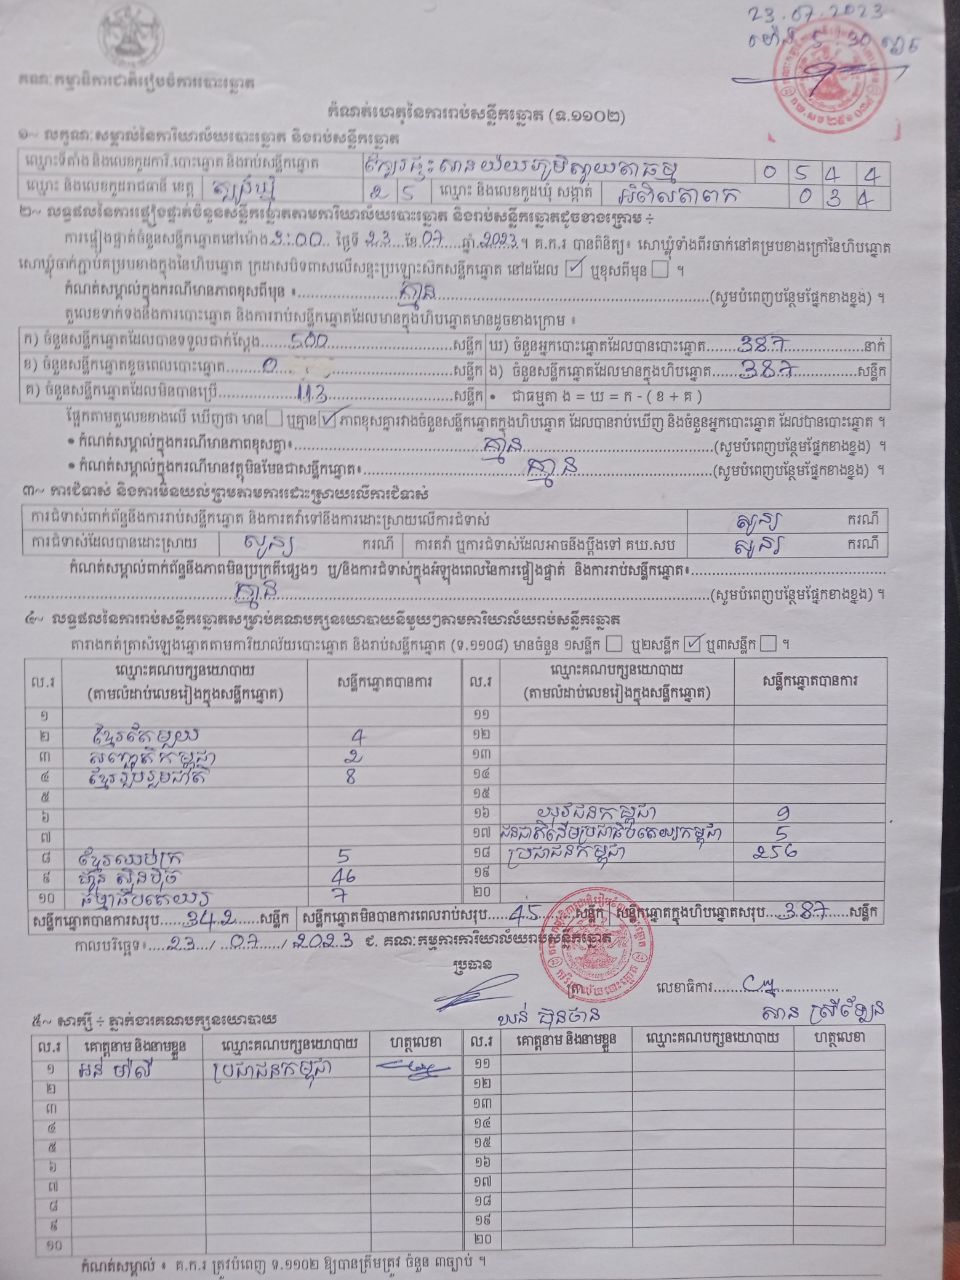 23.07.2023
គណៈកម្មាធិការជាតិរៀបចំការបោះឆ្នោត
កំណត់ហេតុនៃការរាប់សន្លឹកឆ្នោត (ទ.១១០២)
១~ លក្ខណៈសម្គាល់នៃការិយាល័យបោះឆ្នោត និងរាប់សន្លឹកឆ្នោត
ឈ្មោះទីតាំង និងលេខកូដការិ.បោះឆ្នោត និងរាប់សន្លឹកឆ្នោត 0 5 4 4
ឈ្មោះ និងលេខកូដរាជធានី ខេត្ត ត្បូងឃ្មុំ 2 5 ឈ្មោះ និងលេខកូដឃុំ សង្កាត់ 0 3 4
២~ លទ្ធផលនៃការផ្ទៀងផ្ទាត់ចំនួនសន្លឹកឆ្នោតតាមការិយាល័យបោះឆ្នោត និងរាប់សន្លឹកឆ្នោតដូចខាងក្រោម ÷
ការផ្ទៀងផ្ទាត់ចំនួនសន្លឹកឆ្នោតនៅម៉ោង 3:00 ថ្ងៃទី 23 ខែ 07 ឆ្នាំ 2023 ។ គ.ក.រ បានពិនិត្យ៖ សោឃ្មុំទាំងពីរចាក់នៅគម្របខាងក្រៅនៃហិបឆ្នោត
សោឃ្មុំចាក់ភ្ជាប់គម្របខាងក្នុងនៃហិបឆ្នោត ក្រដាសបិទពាសលើសន្ទះប្រឡោះស៊កសន្លឹកឆ្នោត នៅដដែល ☑ ឬខុសពីមុន ☐ ។
កំណត់សម្គាល់ក្នុងករណីមានភាពខុសពីមុន ៖ គ្មាន (សូមបំពេញបន្ថែមផ្នែកខាងខ្នង) ។
តួលេខទាក់ទងនឹងការបោះឆ្នោត និងការរាប់សន្លឹកឆ្នោតដែលមានក្នុងហិបឆ្នោតមានដូចខាងក្រោម ៖
ក) ចំនួនសន្លឹកឆ្នោតដែលបានទទួលជាក់ស្តែង 500 សន្លឹក ឃ) ចំនួនអ្នកបោះឆ្នោតដែលបានបោះឆ្នោត 387 នាក់
ខ) ចំនួនសន្លឹកឆ្នោតខូចពេលបោះឆ្នោត 0 សន្លឹក ង) ចំនួនសន្លឹកឆ្នោតដែលមានក្នុងហិបឆ្នោត 387 សន្លឹក
គ) ចំនួនសន្លឹកឆ្នោតដែលមិនបានប្រើ 113 សន្លឹក • ជាធម្មតា ង = ឃ = ក - ( ខ + គ )
ផ្អែកតាមតួលេខខាងលើ ឃើញថា មាន ☐ ឬគ្មាន ☑ ភាពខុសគ្នារវាងចំនួនសន្លឹកឆ្នោតក្នុងហិបឆ្នោត ដែលបានរាប់ឃើញ និងចំនួនអ្នកបោះឆ្នោត ដែលបានបោះឆ្នោត ។
• កំណត់សម្គាល់ក្នុងករណីមានភាពខុសគ្នា៖ គ្មាន (សូមបំពេញបន្ថែមផ្នែកខាងខ្នង) ។
• កំណត់សម្គាល់ក្នុងករណីមានវត្ថុមិនមែនជាសន្លឹកឆ្នោត៖ គ្មាន (សូមបំពេញបន្ថែមផ្នែកខាងខ្នង) ។
៣~ ការជំទាស់ និងការមិនយល់ព្រមតាមការដោះស្រាយលើការជំទាស់
ការជំទាស់ពាក់ព័ន្ធនឹងការរាប់សន្លឹកឆ្នោត និងការតវ៉ាទៅនឹងការដោះស្រាយលើការជំទាស់ សូន្យ ករណី
ការជំទាស់ដែលបានដោះស្រាយ សូន្យ ករណី ការតវ៉ា ឬការជំទាស់ដែលអាចនឹងប្តឹងទៅ គឃ.សប សូន្យ ករណី
កំណត់សម្គាល់ពាក់ព័ន្ធនឹងភាពមិនប្រក្រតីផ្សេងៗ ឬ/និងការជំទាស់ក្នុងអំឡុងពេលនៃការផ្ទៀងផ្ទាត់ និងការរាប់សន្លឹកឆ្នោត៖
គ្មាន (សូមបំពេញបន្ថែមផ្នែកខាងខ្នង) ។
៤~ លទ្ធផលនៃការរាប់សន្លឹកឆ្នោតសម្រាប់គណបក្សនយោបាយនីមួយៗតាមការិយាល័យរាប់សន្លឹកឆ្នោត
តារាងកត់ត្រាសំឡេងឆ្នោតតាមការិយាល័យបោះឆ្នោត និងរាប់សន្លឹកឆ្នោត (ទ.១១០៨) មានចំនួន ១សន្លឹក ☐ ឬ២សន្លឹក ☑ ឬ៣សន្លឹក ☐ ។
ល.រ ឈ្មោះគណបក្សនយោបាយ (តាមលំដាប់លេខរៀងក្នុងសន្លឹកឆ្នោត) សន្លឹកឆ្នោតបានការ ល.រ ឈ្មោះគណបក្សនយោបាយ (តាមលំដាប់លេខរៀងក្នុងសន្លឹកឆ្នោត) សន្លឹកឆ្នោតបានការ
១ ១១
២ ខ្មែរតែមួយ 4 ១២
៣ សញ្ជាតិកម្ពុជា 2 ១៣
៤ ខ្មែររួបរួមជាតិ 8 ១៤
៥ ១៥
៦ ១៦ យុវជនកម្ពុជា 9
៧ ១៧ ជនជាតិដើមប្រជាធិបតេយ្យកម្ពុជា 5
៨ ខ្មែរឈប់ក្រ 5 ១៨ ប្រជាជនកម្ពុជា 256
៩ ហ្វ៊ុនស៊ិនប៉ិច 46 ១៩
១០ ធម្មាធិបតេយ្យ 7 ២០
សន្លឹកឆ្នោតបានការសរុប 342 សន្លឹក សន្លឹកឆ្នោតមិនបានការពេលរាប់សរុប 45 សន្លឹក សន្លឹកឆ្នោតក្នុងហិបឆ្នោតសរុប 387 សន្លឹក
កាលបរិច្ឆេទ៖ 23 / 07 / 2023 ជ. គណៈកម្មការការិយាល័យរាប់សន្លឹកឆ្នោត
ប្រធាន
ត្រា លេខាធិការ
៥~ សាក្សី ÷ ភ្នាក់ងារគណបក្សនយោបាយ
ល.រ គោត្តនាម និងនាមខ្លួន ឈ្មោះគណបក្សនយោបាយ ហត្ថលេខា ល.រ គោត្តនាម និងនាមខ្លួន ឈ្មោះគណបក្សនយោបាយ ហត្ថលេខា
១ ប្រជាជនកម្ពុជា ១១
២ ១២
៣ ១៣
៤ ១៤
៥ ១៥
៦ ១៦
៧ ១៧
៨ ១៨
៩ ១៩
១០ ២០
កំណត់សម្គាល់ ៖ គ.ក.រ ត្រូវបំពេញ ទ.១១០២ ឱ្យបានត្រឹមត្រូវ ចំនួន ៣ច្បាប់ ។